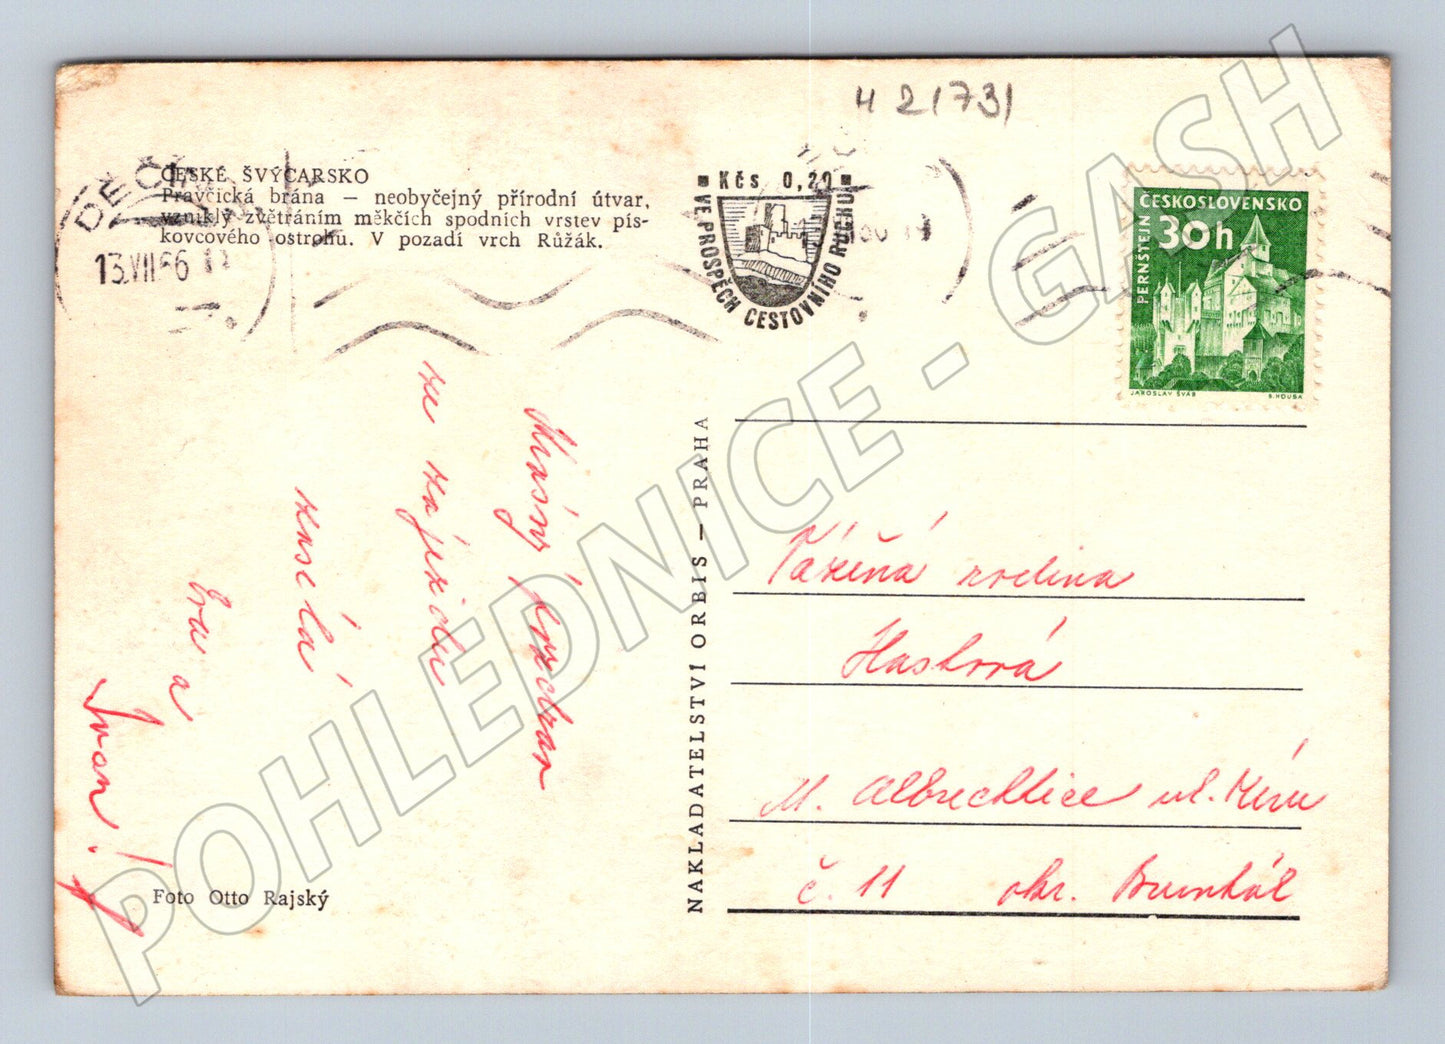 H 21731
DĚČÍN
13.VII.66
ČESKÉ ŠVÝCARSKO
Pravčická brána — neobyčejný přírodní útvar,
vzniklý zvětráním měkčích spodních vrstev pís-
kovcového ostrohu. V pozadí vrch Růžák.
Kčs 0,20
VE PROSPĚCH CESTOVNÍHO RUCHU
ČESKOSLOVENSKO
30h
PERNŠTEJN
JAROSLAV ŠVÁB
B. HOUSA
Krásný
za zájezdu
zasílá
Eva a
Ivan!
Foto Otto Rajský
NAKLADATELSTVÍ ORBIS — PRAHA
Vážená rodina
M. Albrechtice ul.
č. 11 okr. Bruntál
POHLEDNICE - GASH